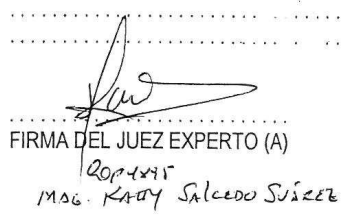 FIRMA DEL JUEZ EXPERTO (A)
MAG. KATTY SALCEDO SUÁREZ